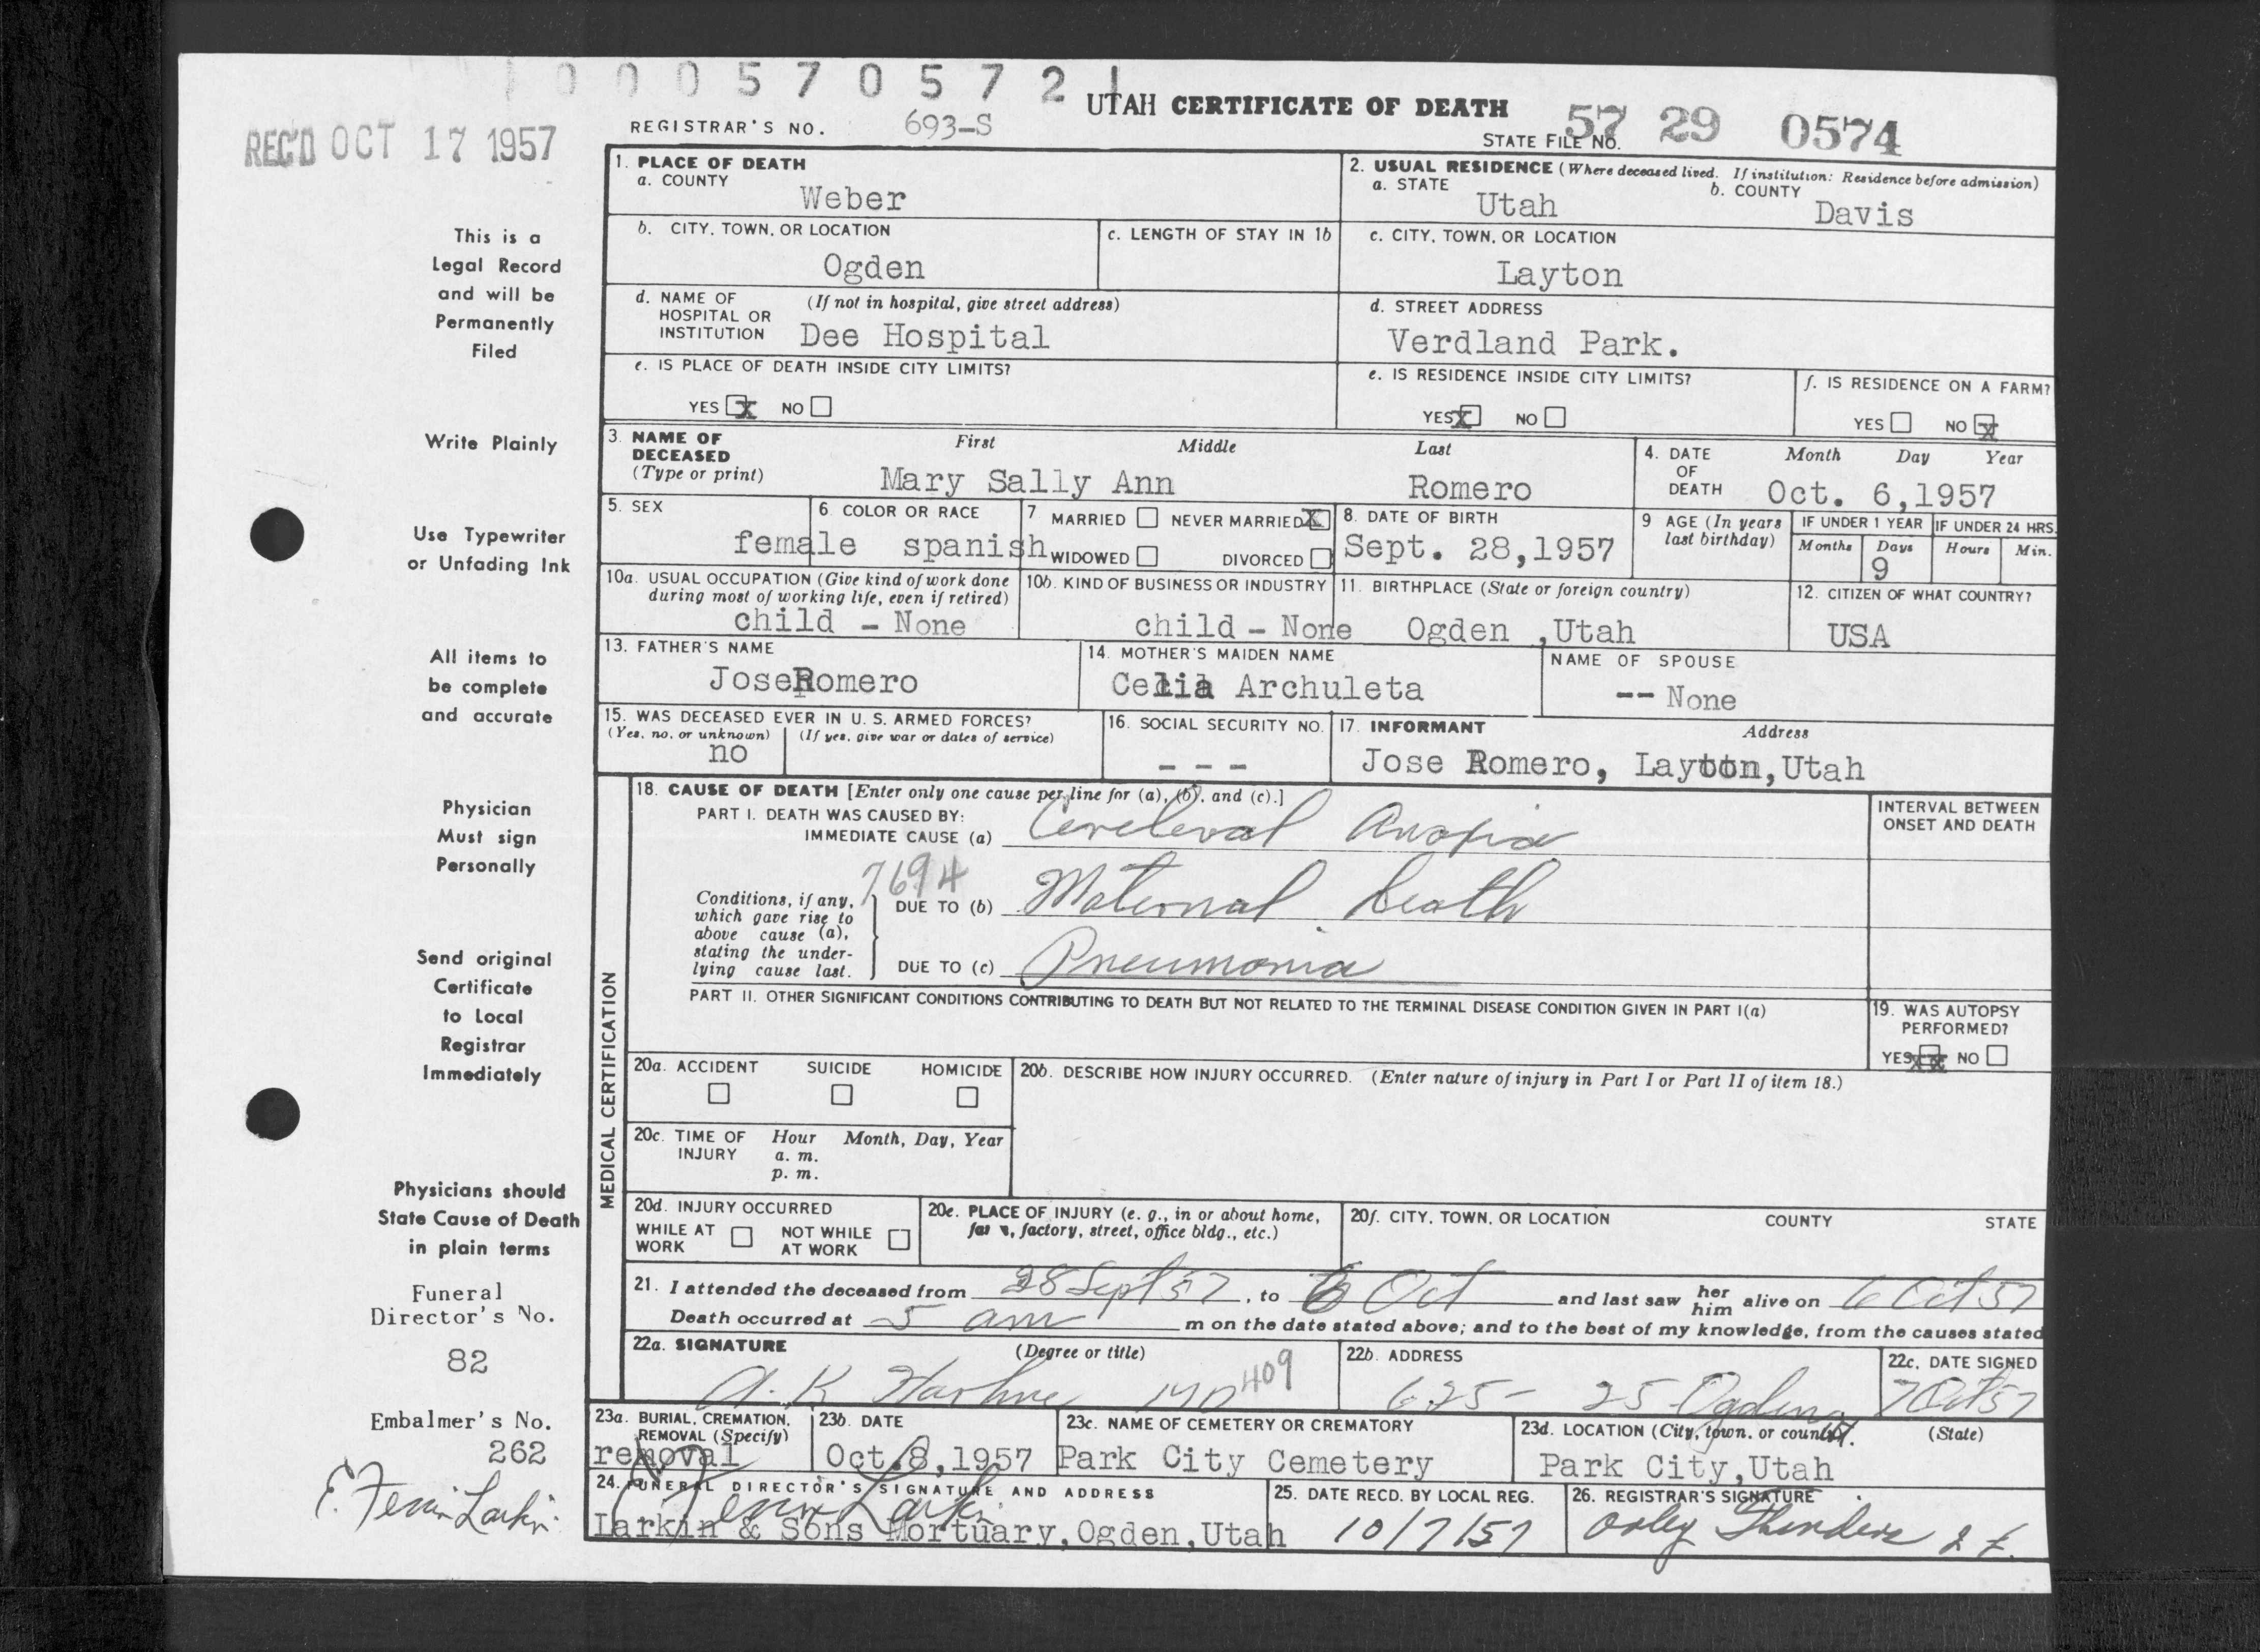 0 0 0 5 7 0 5 7 2 1
UTAH CERTIFICATE OF DEATH
REC'D OCT 17 1957
REGISTRAR'S NO. 693-S
STATE FILE NO. 57 29 0574
1. PLACE OF DEATH
a. COUNTY
Weber
2. USUAL RESIDENCE (Where deceased lived. If institution: Residence before admission)
a. STATE
Utah
b. COUNTY
Davis
b. CITY, TOWN, OR LOCATION
Ogden
c. LENGTH OF STAY IN 1b
c. CITY, TOWN, OR LOCATION
Layton
d. NAME OF HOSPITAL OR INSTITUTION
(If not in hospital, give street address)
Dee Hospital
d. STREET ADDRESS
Verdland Park.
e. IS PLACE OF DEATH INSIDE CITY LIMITS?
YES X NO
e. IS RESIDENCE INSIDE CITY LIMITS?
YES X NO
f. IS RESIDENCE ON A FARM?
YES NO X
3. NAME OF DECEASED
(Type or print)
First Middle Last
Mary Sally Ann Romero
4. DATE OF DEATH
Month Day Year
Oct. 6,1957
5. SEX
female
6. COLOR OR RACE
spanish
7 MARRIED NEVER MARRIED X
WIDOWED DIVORCED
8. DATE OF BIRTH
Sept. 28,1957
9 AGE (In years last birthday)
IF UNDER 1 YEAR
Months Days
9
IF UNDER 24 HRS.
Hours Min.
10a. USUAL OCCUPATION (Give kind of work done during most of working life, even if retired)
child - None
10b. KIND OF BUSINESS OR INDUSTRY
child - None
11. BIRTHPLACE (State or foreign country)
Ogden ,Utah
12. CITIZEN OF WHAT COUNTRY?
USA
13. FATHER'S NAME
Jose Romero
14. MOTHER'S MAIDEN NAME
Celia Archuleta
NAME OF SPOUSE
-- None
15. WAS DECEASED EVER IN U. S. ARMED FORCES?
(Yes, no, or unknown) (If yes, give war or dates of service)
no
16. SOCIAL SECURITY NO.
- - -
17. INFORMANT Address
Jose Romero, Layton,Utah
18. CAUSE OF DEATH [Enter only one cause per line for (a), (b), and (c).]
PART I. DEATH WAS CAUSED BY:
IMMEDIATE CAUSE (a) Cerebral Anoxia
INTERVAL BETWEEN ONSET AND DEATH
7694
Conditions, if any, which gave rise to above cause (a), stating the underlying cause last.
DUE TO (b) Maternal Death
DUE TO (c) Pneumonia
PART II. OTHER SIGNIFICANT CONDITIONS CONTRIBUTING TO DEATH BUT NOT RELATED TO THE TERMINAL DISEASE CONDITION GIVEN IN PART I(a)
19. WAS AUTOPSY PERFORMED?
YES XX NO
MEDICAL CERTIFICATION
20a. ACCIDENT SUICIDE HOMICIDE
20b. DESCRIBE HOW INJURY OCCURRED. (Enter nature of injury in Part I or Part II of item 18.)
20c. TIME OF INJURY
Hour Month, Day, Year
a. m.
p. m.
20d. INJURY OCCURRED
WHILE AT WORK NOT WHILE AT WORK
20e. PLACE OF INJURY (e. g., in or about home, farm, factory, street, office bldg., etc.)
20f. CITY, TOWN, OR LOCATION COUNTY STATE
21. I attended the deceased from 28 Sept 57, to 6 Oct and last saw her him alive on 6 Oct 57
Death occurred at 5 am m on the date stated above; and to the best of my knowledge, from the causes stated
22a. SIGNATURE (Degree or title)
A. K. MD 409
22b. ADDRESS
625 - 25 Ogden
22c. DATE SIGNED
7 Oct 57
23a. BURIAL, CREMATION, REMOVAL (Specify)
removal
23b. DATE
Oct.8,1957
23c. NAME OF CEMETERY OR CREMATORY
Park City Cemetery
23d. LOCATION (City, town, or county) (State)
Park City,Utah
24. FUNERAL DIRECTOR'S SIGNATURE AND ADDRESS
Larkin & Sons Mortuary,Ogden,Utah
25. DATE RECD. BY LOCAL REG.
10/7/57
26. REGISTRAR'S SIGNATURE
This is a
Legal Record
and will be
Permanently
Filed
Write Plainly
Use Typewriter
or Unfading Ink
All items to
be complete
and accurate
Physician
Must sign
Personally
Send original
Certificate
to Local
Registrar
Immediately
Physicians should
State Cause of Death
in plain terms
Funeral
Director's No.
82
Embalmer's No.
262
Larkin